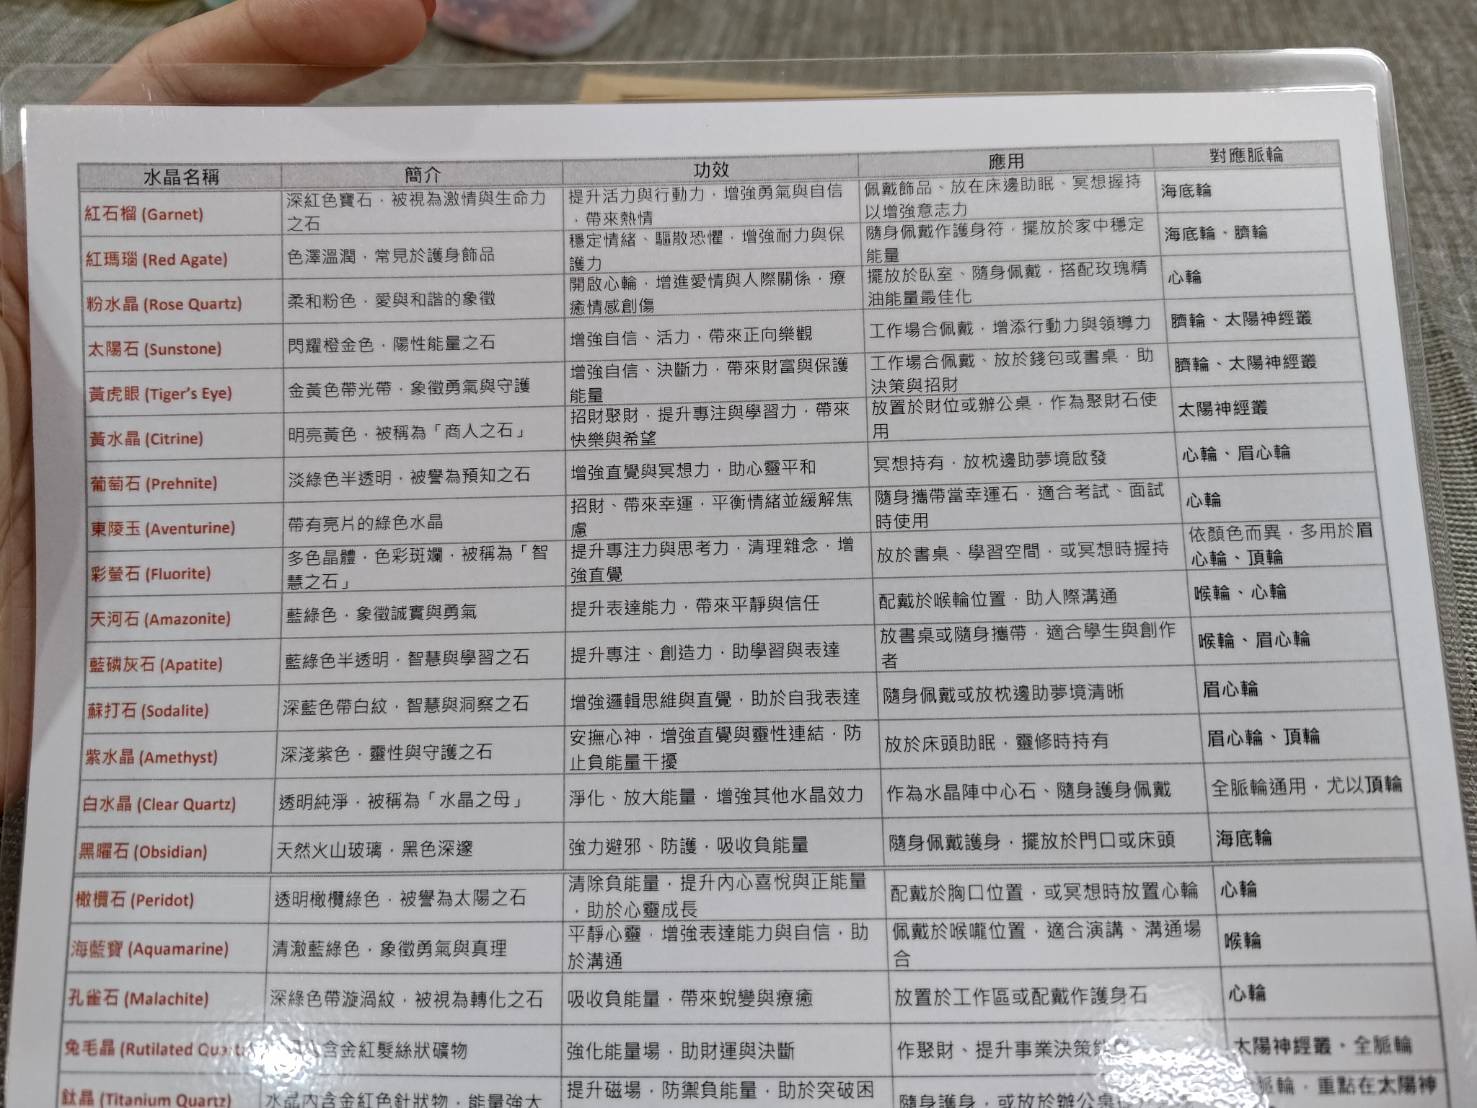 水晶名稱 簡介 功效 應用 對應脈輪
紅石榴 (Garnet) 深紅色寶石，被視為激情與生命力之石 提升活力與行動力，增強勇氣與自信，帶來熱情 佩戴飾品、放在床邊助眠、冥想握持以增強意志力 海底輪
紅瑪瑙 (Red Agate) 色澤溫潤，常見於護身飾品 穩定情緒、驅散恐懼，增強耐力與保護力 隨身佩戴作護身符，擺放於家中穩定能量 海底輪、臍輪
粉水晶 (Rose Quartz) 柔和粉色，愛與和諧的象徵 開啟心輪，增進愛情與人際關係，療癒情感創傷 擺放於臥室、隨身佩戴，搭配玫瑰精油能量最佳化 心輪
太陽石 (Sunstone) 閃耀橙金色，陽性能量之石 增強自信、活力，帶來正向樂觀 工作場合佩戴，增添行動力與領導力 臍輪、太陽神經叢
黃虎眼 (Tiger's Eye) 金黃色帶光帶，象徵勇氣與守護 增強自信、決斷力，帶來財富與保護能量 工作場合佩戴、放於錢包或書桌，助決策與招財 臍輪、太陽神經叢
黃水晶 (Citrine) 明亮黃色，被稱為「商人之石」 招財聚財，提升專注與學習力，帶來快樂與希望 放置於財位或辦公桌，作為聚財石使用 太陽神經叢
葡萄石 (Prehnite) 淡綠色半透明，被譽為預知之石 增強直覺與冥想力，助心靈平和 冥想持有，放枕邊助夢境啟發 心輪、眉心輪
東陵玉 (Aventurine) 帶有亮片的綠色水晶 招財、帶來幸運，平衡情緒並緩解焦慮 隨身攜帶當幸運石，適合考試、面試時使用 心輪
彩螢石 (Fluorite) 多色晶體，色彩斑斕，被稱為「智慧之石」 提升專注力與思考力，清理雜念，增強直覺 放於書桌、學習空間，或冥想時握持 依顏色而異，多用於眉心輪、頂輪
天河石 (Amazonite) 藍綠色，象徵誠實與勇氣 提升表達能力，帶來平靜與信任 配戴於喉輪位置，助人際溝通 喉輪、心輪
藍磷灰石 (Apatite) 藍綠色半透明，智慧與學習之石 提升專注、創造力，助學習與表達 放書桌或隨身攜帶，適合學生與創作者 喉輪、眉心輪
蘇打石 (Sodalite) 深藍色帶白紋，智慧與洞察之石 增強邏輯思維與直覺，助於自我表達 隨身佩戴或放枕邊助夢境清晰 眉心輪
紫水晶 (Amethyst) 深淺紫色，靈性與守護之石 安撫心神，增強直覺與靈性連結，防止負能量干擾 放於床頭助眠，靈修時持有 眉心輪、頂輪
白水晶 (Clear Quartz) 透明純淨，被稱為「水晶之母」 淨化、放大能量，增強其他水晶效力 作為水晶陣中心石、隨身護身佩戴 全脈輪通用，尤以頂輪
黑曜石 (Obsidian) 天然火山玻璃，黑色深邃 強力避邪、防護，吸收負能量 隨身佩戴護身，擺放於門口或床頭 海底輪
橄欖石 (Peridot) 透明橄欖綠色，被譽為太陽之石 清除負能量，提升內心喜悅與正能量，助於心靈成長 配戴於胸口位置，或冥想時放置心輪 心輪
海藍寶 (Aquamarine) 清澈藍綠色，象徵勇氣與真理 平靜心靈，增強表達能力與自信，助於溝通 佩戴於喉嚨位置，適合演講、溝通場合 喉輪
孔雀石 (Malachite) 深綠色帶漩渦紋，被視為轉化之石 吸收負能量，帶來蛻變與療癒 放置於工作區或配戴作護身石 心輪
兔毛晶 (Rutilated Quartz) 含金紅髮絲狀礦物 強化能量場，助財運與決斷 作聚財、提升事業決策 太陽神經叢、全脈輪
鈦晶 (Titanium Quartz) 水晶內含金紅色針狀物，能量強大 提升磁場，防禦負能量，助於突破困 隨身護身，或放於辦公桌 脈輪，重點在太陽神